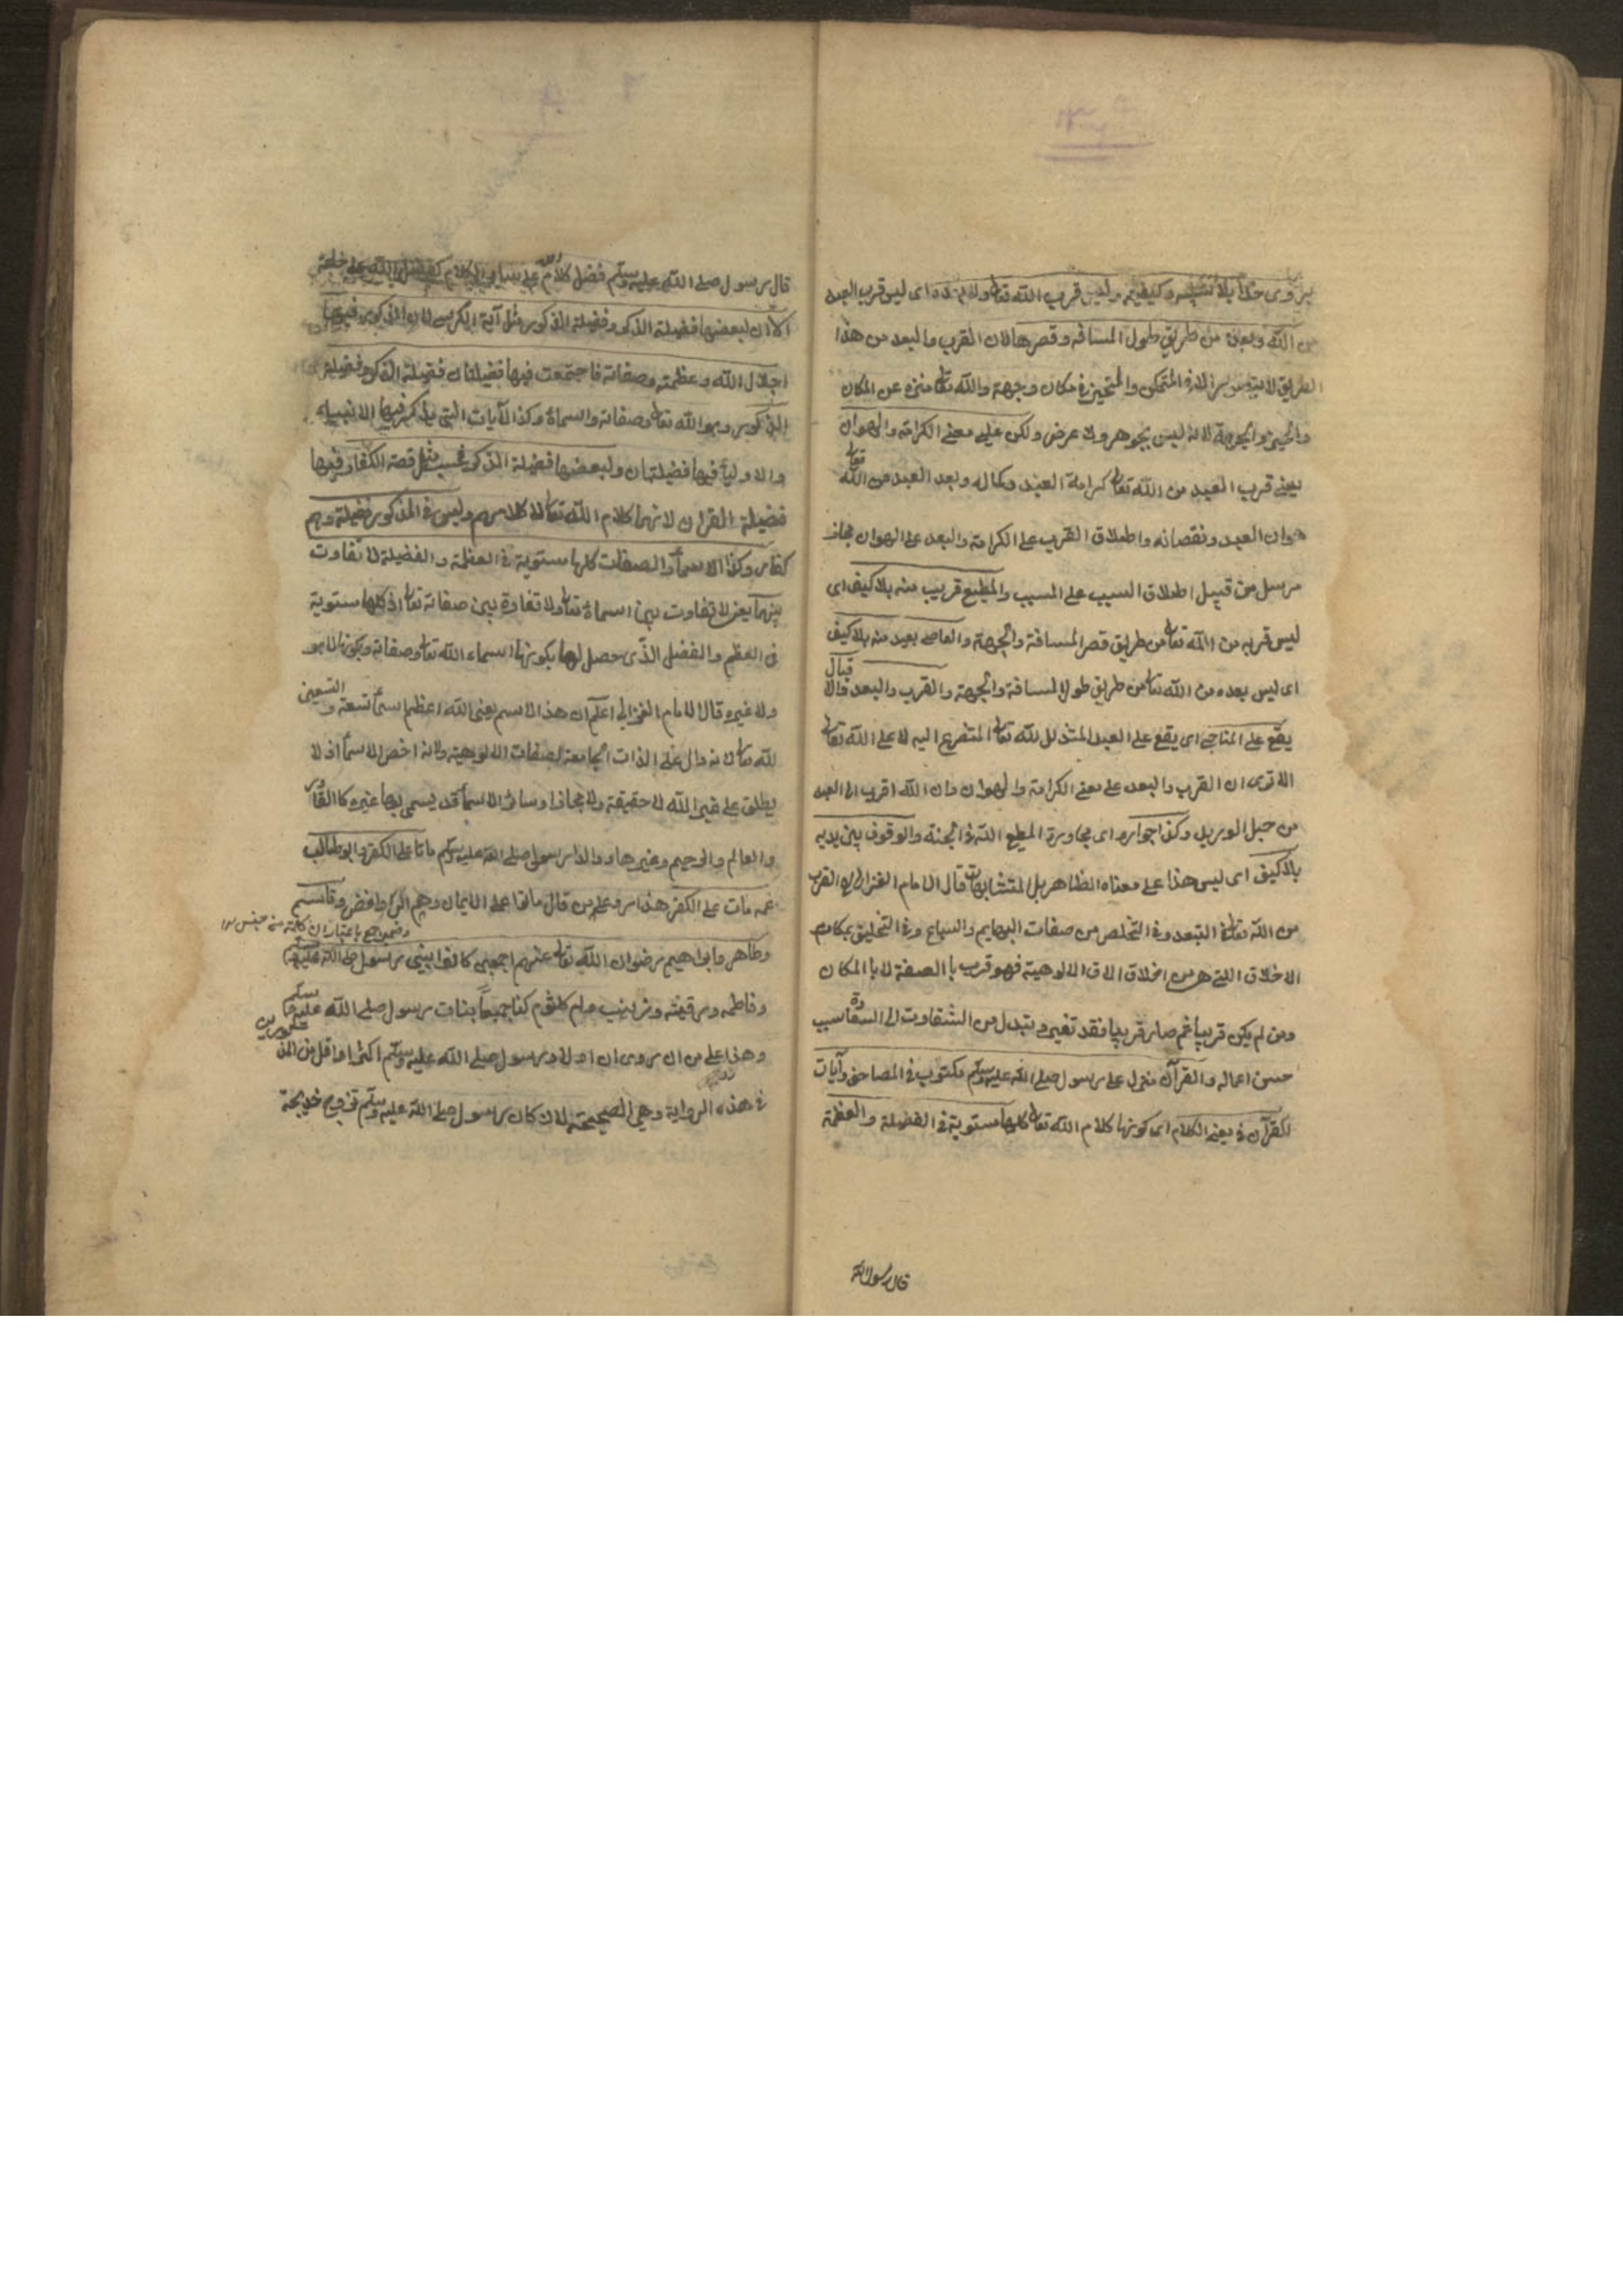 يروى خدا بلا تشبيه وكيفية وليس قرب الله تعالى ولا بعده اى ليس قرب العبد
من الله وبعده من طريق طول المسافة وقصرها لان القرب والبعد من هذا
الطريق لا يتصور الا فى المتمكن والمتحيز فى مكان وجهة والله تعالى منزه عن المكان
والحيز والجهة لانه ليس بجوهر ولا عرض ولكن على معنى الكرامة والهوان
يعنى قرب العبد من الله تعالى كرامة العبد وكماله وبعد العبد من الله تعالى
هوان العبد ونقصانه واطلاق القرب على الكرامة والبعد على الهوان مجاز
مرسل من قبيل اطلاق السبب على المسبب والمطيع قريب منه بلا كيف اى
ليس قربه من الله تعالى من طريق قصر المسافة والجهة والعاصى بعيد منه بلا كيف
اى ليس بعده من الله تعالى من طريق طول المسافة والجهة والقرب والبعد والاقبال
يقع على المناجى اى يقع على العبد المتذلل لله تعالى المتضرع اليه لا على الله تعالى
الا ترى ان القرب والبعد على معنى الكرامة والهوان وان الله اقرب الى العبد
من حبل الوريد وكذا جواره اى مجاورة المطيع الله فى الجنة والوقوف بين يديه
بلا كيف اى ليس هذا على معناه الظاهر بل المتشابهات قال الامام الغزالى القرب
من الله تعالى فى البعد وفى التخلص من صفات البهايم والسباع وفى التخليق بمكارم
الاخلاق التى هى من اخلاق الالوهية فهو قرب با الصفة لا با المكان
ومن لم يكن قريبا ثم صار قريبا فقد تغير وتبدل من الشقاوت الى السعادة بسبب
حسن اعماله والقرآن منزل على رسول صلى الله عليه وسلم مكتوب فى المصاحف وآيات
القرآن فى معنى الكلام اى كونها كلام الله تعالى كلها مستوية فى الفضيلة والعظمة
قال رسول الله
قال رسول صلى الله عليه وسلم فضل كلام الله على سائر الكلام كفضل الله على خلقه
الا ان لبعضها فضيلة الذكر وفضيلة المذكور مثل آية الكرسى لان المذكور فيها
اجلال الله وعظمته وصفاته فاجتمعت فيها فضيلتان فضيلة الذكر وفضيلة
المذكور وهو الله تعالى وصفاته واسماؤه وكذا الآيات التى يذكر فيها الانبياء
والاولياء فيها فضيلتان ولبعضها فضيلة الذكر فحسب مثل قصة الكفار وفيها
فضيلة القران لانها كلام الله تعالى لا كلامهم وليس فى المذكور فضيلة وهم
كفار وكذا الاسماء والصفات كلها مستوية فى العظمة والفضيلة لا تفاوت
بينهما يعنى لا تفاوت بين اسمائه تعالى ولا تفاوت بين صفاته تعالى اذ كلها مستوية
فى العظم والفضل الذى حصل لها بكونها اسماء الله تعالى وصفاته وبكونها لا هو
ولا غيره وقال الامام الغزالى اعلم ان هذا الاسم يعنى الله اعظم اسماء تسعة والتسعين
لله تعالى لانه دال على الذات الجامعة لصفات الالوهية ولانه اخص الاسماء اذ لا
يطلق على غير الله لا حقيقة ولا مجازا وسائر الاسماء قد يسمى بها غيره كالقادر
والعالم والرحيم وغيرها ووالدا رسول صلى الله عليه وسلم ماتا على الكفر وابو طالب
عمه مات على الكفر هذا رد على من قال ماتا على الايمان وهم الروافض وقاسم
وطاهر وابراهيم رضوان الله تعالى عنهم اجمعين كانوا بنى رسول صلى الله عليه وسلم
وفاطمه ورقية وزينب وام كلثوم كن جميعا بنات رسول صلى الله عليه وسلم
وهذا على من ان روى ان اولاد رسول صلى الله عليه وسلم اكثر او اقل من المذكورين
فى هذه الرواية وهى الصحيحة لان كان رسول صلى الله عليه وسلم تزوج خديجة